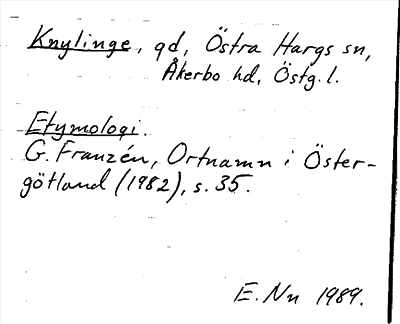 Knylinge, gd, Östra Hargs sn,
Åkerbo hd, Östg. l.
Etymologi.
G. Franzén, Ortnamn i Öster-
götland (1982), s. 35.
E. Nn 1989.